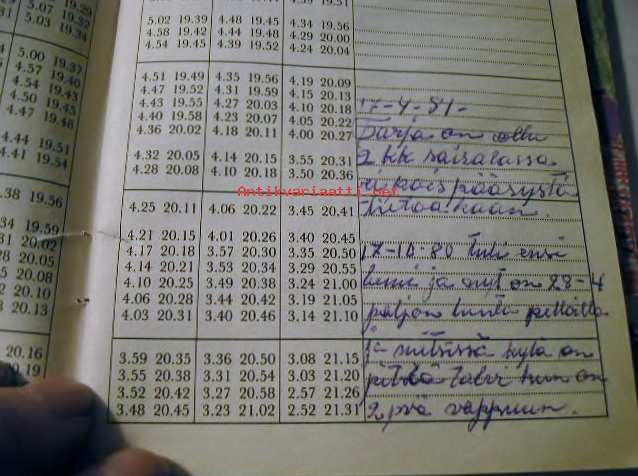 3.07 19.32
5.03 19.34
5.00 19.37
4.57 19.40
4.54 19.43
4.50 19.45
4.47 19.48
4.44 19.51
4.41 19.54
.38 19.56
34 19.59
31 20.02
28 20.05
5 20.08
2 20.10
20.13
20.16
0.19
4.39 19.51
5.02 19.39 4.48 19.45 4.34 19.56
4.58 19.42 4.44 19.48 4.29 20.00
4.54 19.45 4.39 19.52 4.24 20.04
4.51 19.49 4.35 19.56 4.19 20.09
4.47 19.52 4.31 19.59 4.15 20.13
4.43 19.55 4.27 20.03 4.10 20.18
4.40 19.58 4.23 20.07 4.05 20.22
4.36 20.02 4.18 20.11 4.00 20.27
4.32 20.05 4.14 20.15 3.55 20.31
4.28 20.08 4.10 20.18 3.50 20.36
4.25 20.11 4.06 20.22 3.45 20.41
4.21 20.15 4.01 20.26 3.40 20.45
4.17 20.18 3.57 20.30 3.35 20.50
4.14 20.21 3.53 20.34 3.29 20.55
4.10 20.25 3.49 20.38 3.24 21.00
4.06 20.28 3.44 20.42 3.19 21.05
4.03 20.31 3.40 20.46 3.14 21.10
3.59 20.35 3.36 20.50 3.08 21.15
3.55 20.38 3.31 20.54 3.03 21.20
3.52 20.42 3.27 20.58 2.57 21.26
3.48 20.45 3.23 21.02 2.52 21.31
17-4-81-
Tarja on ollu
2 kk sairalassa
eikä pois pääsystä
tietoakaan.
17-10-80 tuli ensi
lumi ja nyt on 28-4
paljon lunta pelloilla
ja mettissä kyllä on
pitkä talvi kun on
2 pvä vappuun.
Antikvariaatti.net